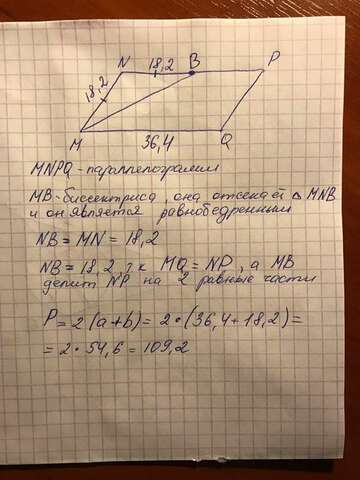 N 18,2 B P
18,2
M 36,4 Q
MNPQ - параллелограмм
MB - биссектриса, она отсекает △ MNB
и он является равнобедренным
NB = MN = 18,2
NB = 18,2, т.к MQ = NP, а MB
делит NP на 2 равные части
P = 2(a+b) = 2•(36,4+18,2) =
= 2•54,6 = 109,2